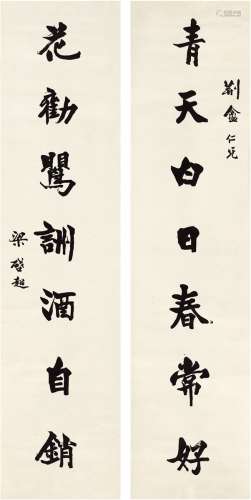 仁兄
青天白日春常好
花勸鸎詶酒自銷
梁啓超